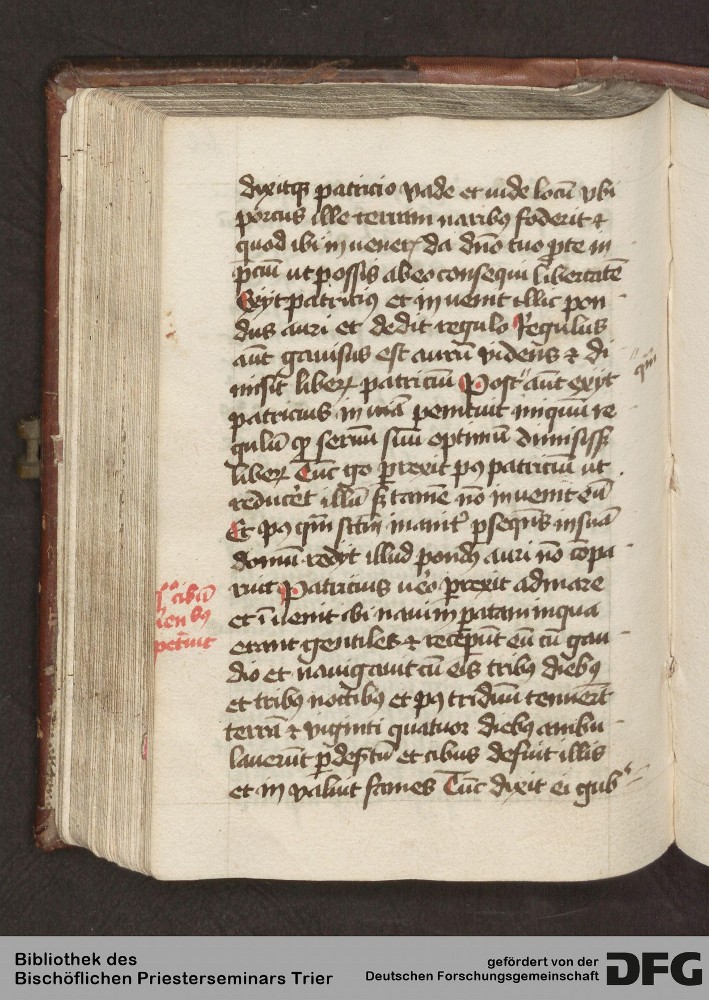 dixitqꝫ patricio vade et vide locū vbi
porcus ille terram naribꝯ foderit ⁊
quod ibi invenerꝭ da dn̄o tuo ꝓte in
p̄ciū ut possis ab eo consequi libertatē
Exijt patriciꝯ et invenit illic pon
dus auri et dedit regulo Regulus
aūt gavisus est aurū videns ⁊ di
misit liberꝝ patriciū Post aūt exijt
patricius in viā penituit iniquū re
gulū ꝙ servū suū optimū dimisiss̄
liberꝝ Tūc g̊o perrexit pꝯ patriciū ut
reduceret illū sꝫ tamē nō invenit eū
Et pꝯ qm̄ inaniter ꝑseqūs in suā
domū redijt illud pondꝯ auri nō copa
ruit Patricius v̊o perrexit ad mare
et īvenit ibi navim paratam in qua
erant gentiles ⁊ receperūt eū cū gau
dio et navigavit cū eis tribꝯ diebꝯ
et tribꝯ noctibꝯ et pꝯ triduū tenuerūt
terrā ⁊ viginti quatuor diebꝯ ambu
laverūt ꝑ desertū et cibus defuit illis
et invaluit fames Tūc dixit ei gub
cibū
petiuit
Bibliothek des
Bischöflichen Priesterseminars Trier
gefördert von der
Deutschen Forschungsgemeinschaft
DFG